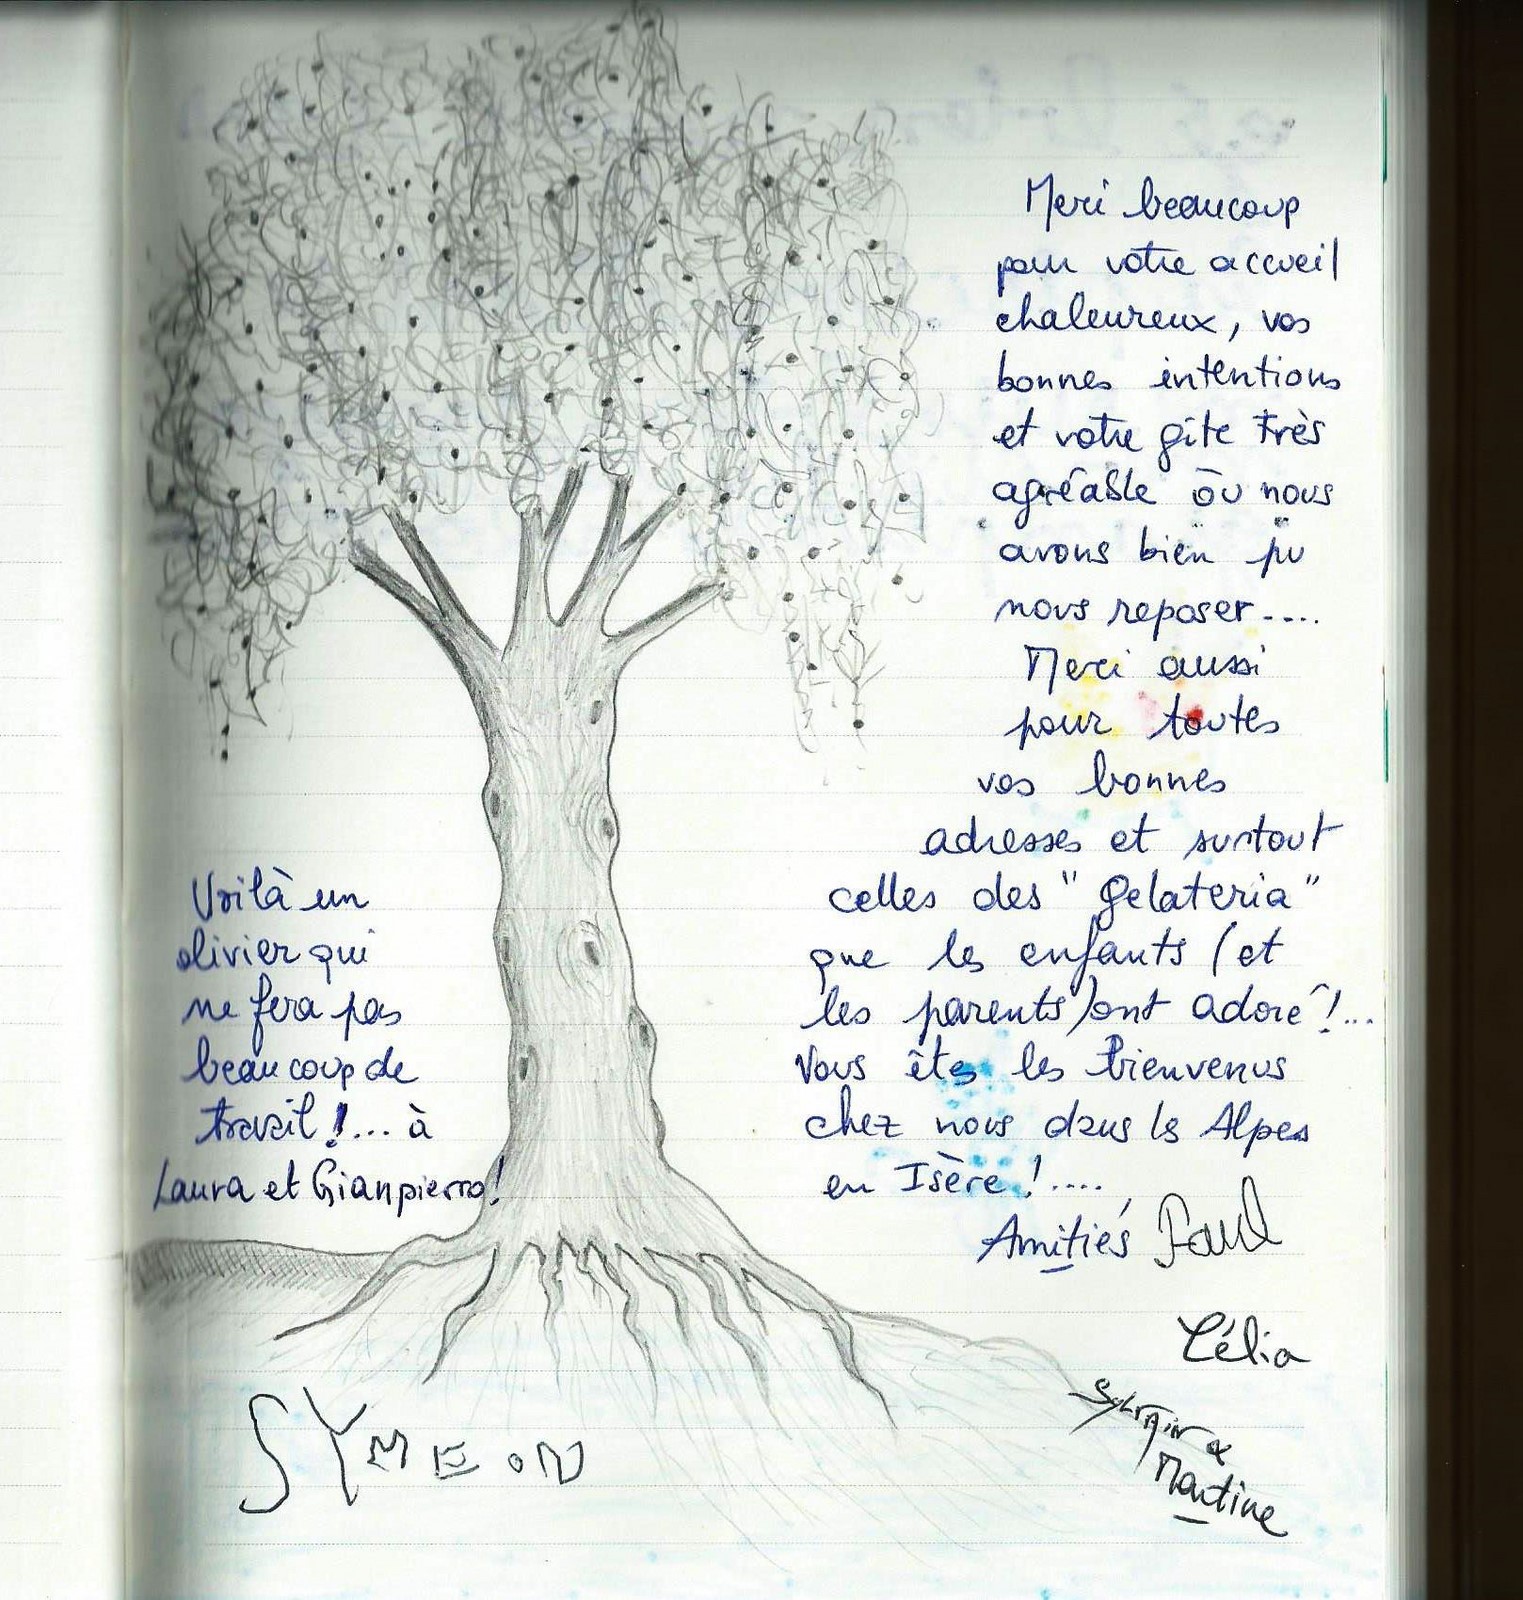 Merci beaucoup
pour votre accueil
chaleureux, vos
bonnes intentions
et votre gîte très
agréable où nous
avons bien pu
nous reposer....
Merci aussi
pour toutes
vos bonnes
adresses et surtout
celles des "gelateria"
que les enfants (et
les parents) ont adoré !...
Vous êtes les bienvenus
chez nous dans les Alpes
en Isère !....
Amitiés Paul
Célia
Sylvain &
Martine
Voilà un
olivier qui
ne fera pas
beaucoup de
travail !... à
Laura et Gianpierro !
SYMEON